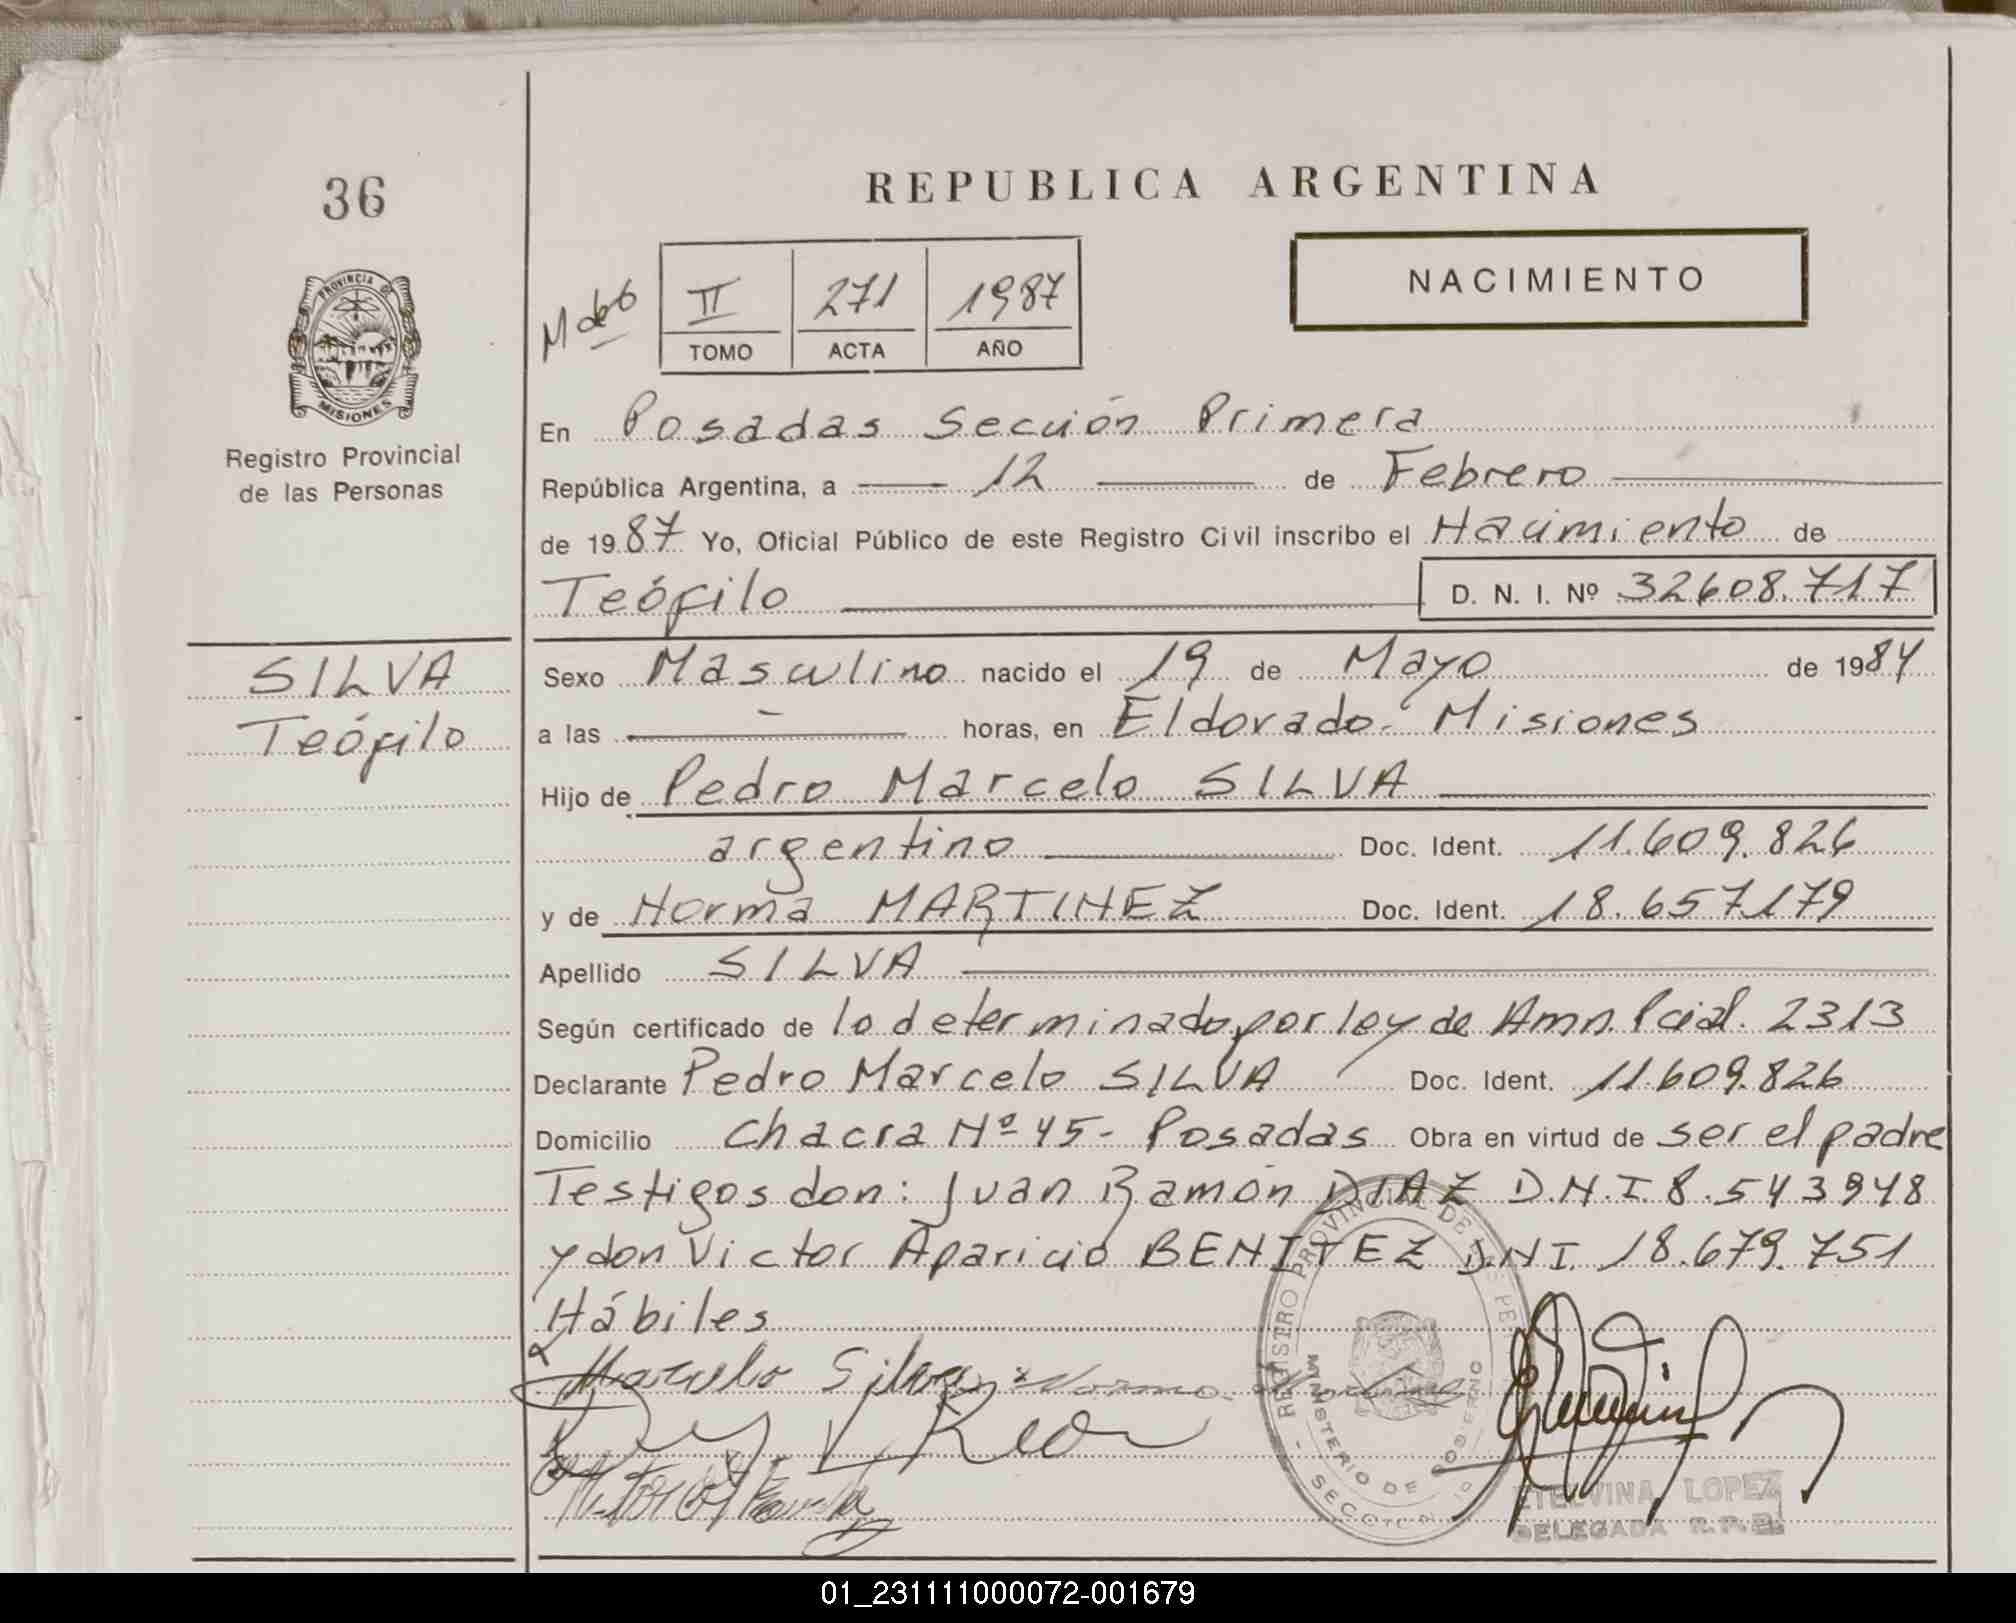 36
REPUBLICA ARGENTINA
PROVINCIA D
MISIONES
Registro Provincial
de las Personas
II 271 1987
TOMO ACTA AÑO
NACIMIENTO
En Posadas Sección Primera
República Argentina, a 12 de Febrero
de 1987 Yo, Oficial Público de este Registro Civil inscribo el Nacimiento de
Teófilo D. N. I. Nº 32608.717
SILVA
Teófilo
Sexo Masculino nacido el 19 de Mayo de 1984
a las - horas, en Eldorado - Misiones
Hijo de Pedro Marcelo SILVA
argentino Doc. Ident. 11.609.826
y de Norma MARTINEZ Doc. Ident. 18.657.179
Apellido SILVA
Según certificado de lo determinado por ley de Amn. Pcial. 2313
Declarante Pedro Marcelo SILVA Doc. Ident. 11.609.826
Domicilio Chacra Nº 45 - Posadas Obra en virtud de ser el padre
Testigos don: Juan Ramón DIAZ D.N.I. 8.543948
y don Victor Aparicio BENITEZ D.N.I. 18.679.751
Hábiles
Marcelo Silva Norma
REGISTRO PROVINCIAL DE
MINISTERIO DE GOBIERNO
ETELVINA LOPEZ
DELEGADA R.P.P.
01_231111000072-001679